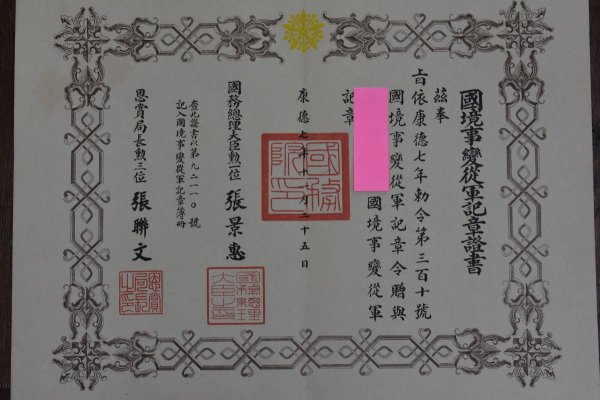 國境事變從軍記章證書
茲奉
旨依康德七年勅令第三百十號
國境事變從軍記章令贈與
國境事變從軍
記章
康德七年十一月二十五日
國務院印
國務總理大臣勲一位 張景惠
查此證書以第九二一一〇號
記入國境事變從軍記章簿冊
恩賞局長勲三位 張聯文
恩賞局長之印